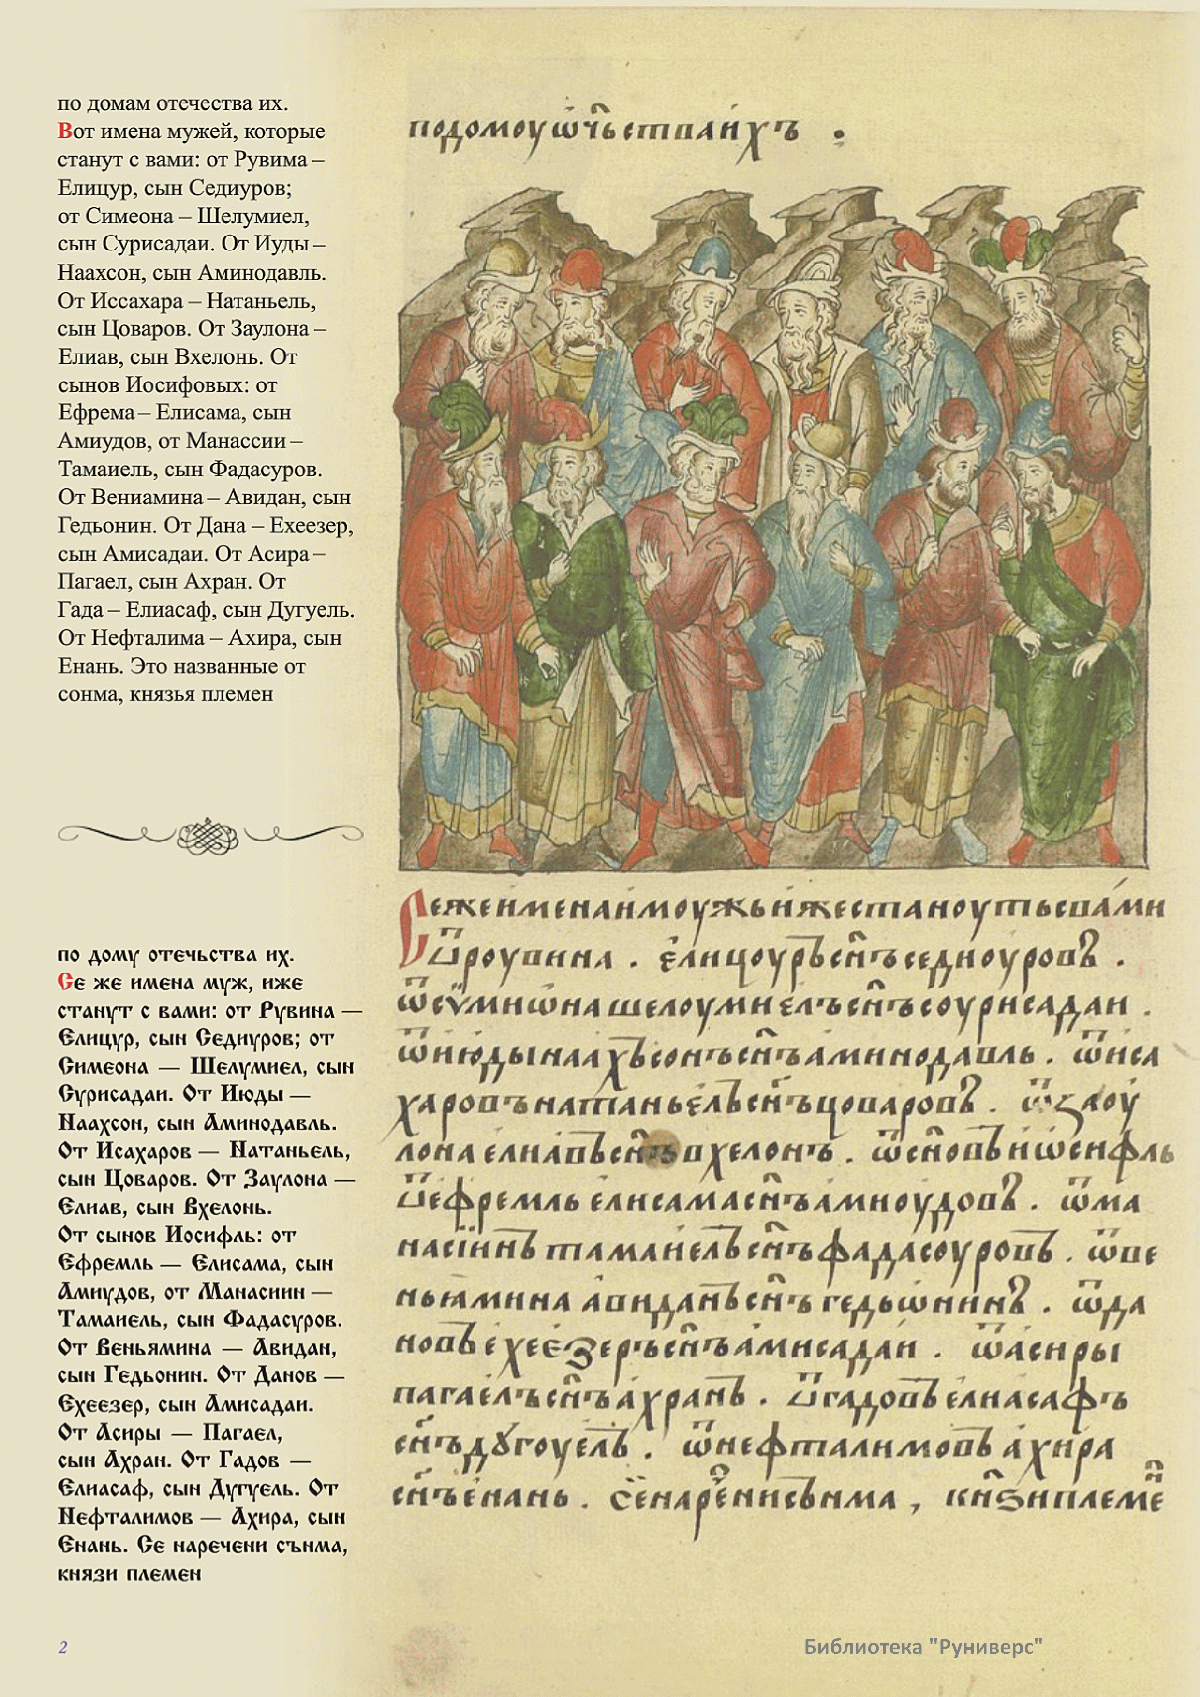 по домам отечества их.
Вот имена мужей, которые
станут с вами: от Рувима –
Елицур, сын Седиуров;
от Симеона – Шелумиел,
сын Сурисадаи. От Иуды –
Наахсон, сын Аминодавль.
От Иссахара – Натаньель,
сын Цоваров. От Заулона –
Елиав, сын Вхелонь. От
сынов Иосифовых: от
Ефрема – Елисама, сын
Амиудов, от Манассии –
Тамаиель, сын Фадасуров.
От Вениамина – Авидан, сын
Гедьонин. От Дана – Ехеезер,
сын Амисадаи. От Асира –
Пагаел, сын Ахран. От
Гада – Елиасаф, сын Дугуель.
От Нефталима – Ахира, сын
Енань. Это названные от
сонма, князья племен
по дому отечьства их.
Се же имена муж, иже
станут с вами: от Рувина —
Елицур, сын Седиуров; от
Симеона — Шелумиел, сын
Сурисадаи. От Июды —
Наахсон, сын Аминодавль.
От Исахаров — Натаньель,
сын Цоваров. От Заулона —
Елиав, сын Вхелонь.
От сынов Иосифль: от
Ефремль — Елисама, сын
Амиудов, от Манасиин —
Тамаиель, сын Фадасуров.
От Веньямина — Авидан,
сын Гедьонин. От Данов —
Ехеезер, сын Амисадаи.
От Асиры — Пагаел,
сын Ахран. От Гадов —
Елиасаф, сын Дугуель. От
Нефталимов — Ахира, сын
Енань. Се наречени сънма,
князи племен
подомоуѡч҃ьстваи́хъ :
Сежеименаимоужьи́жестаноутьсва́ми
ѿроувина . є҆лицоуръсн҃ъседиоуровъ .
ѿсѵ̈миѡнашелоумиелъсн҃ъсоурисадаи .
ѿиюдынаахъсонъсн҃ъаминодавль . ѿиса
харовънатаньє́льсн҃ъцоваровъ . ѿзаоу
лонаелиавъсн҃ъвхелонъ . ѿсн҃овъиѡсифль
ѿефремльелисамасн҃ъамиоудовъ . ѿма
насїинътамаиельсн҃ъфадасоуровъ . ѿве
ньꙗминаавиданъсн҃ъгедьѡнинъ . ѿда
новъехеезеръсн҃ъамисадаи . ѿасиры
пагаелъсн҃ъахранъ . ѿгадовъелиасафъ
сн҃ъдꙋгоуель . ѿнефталимовъахира
сн҃ъенань . сенарⷱ҇енисънма , кн҃ѕиплемеⷩ҇
2
Библиотека "Руниверс"